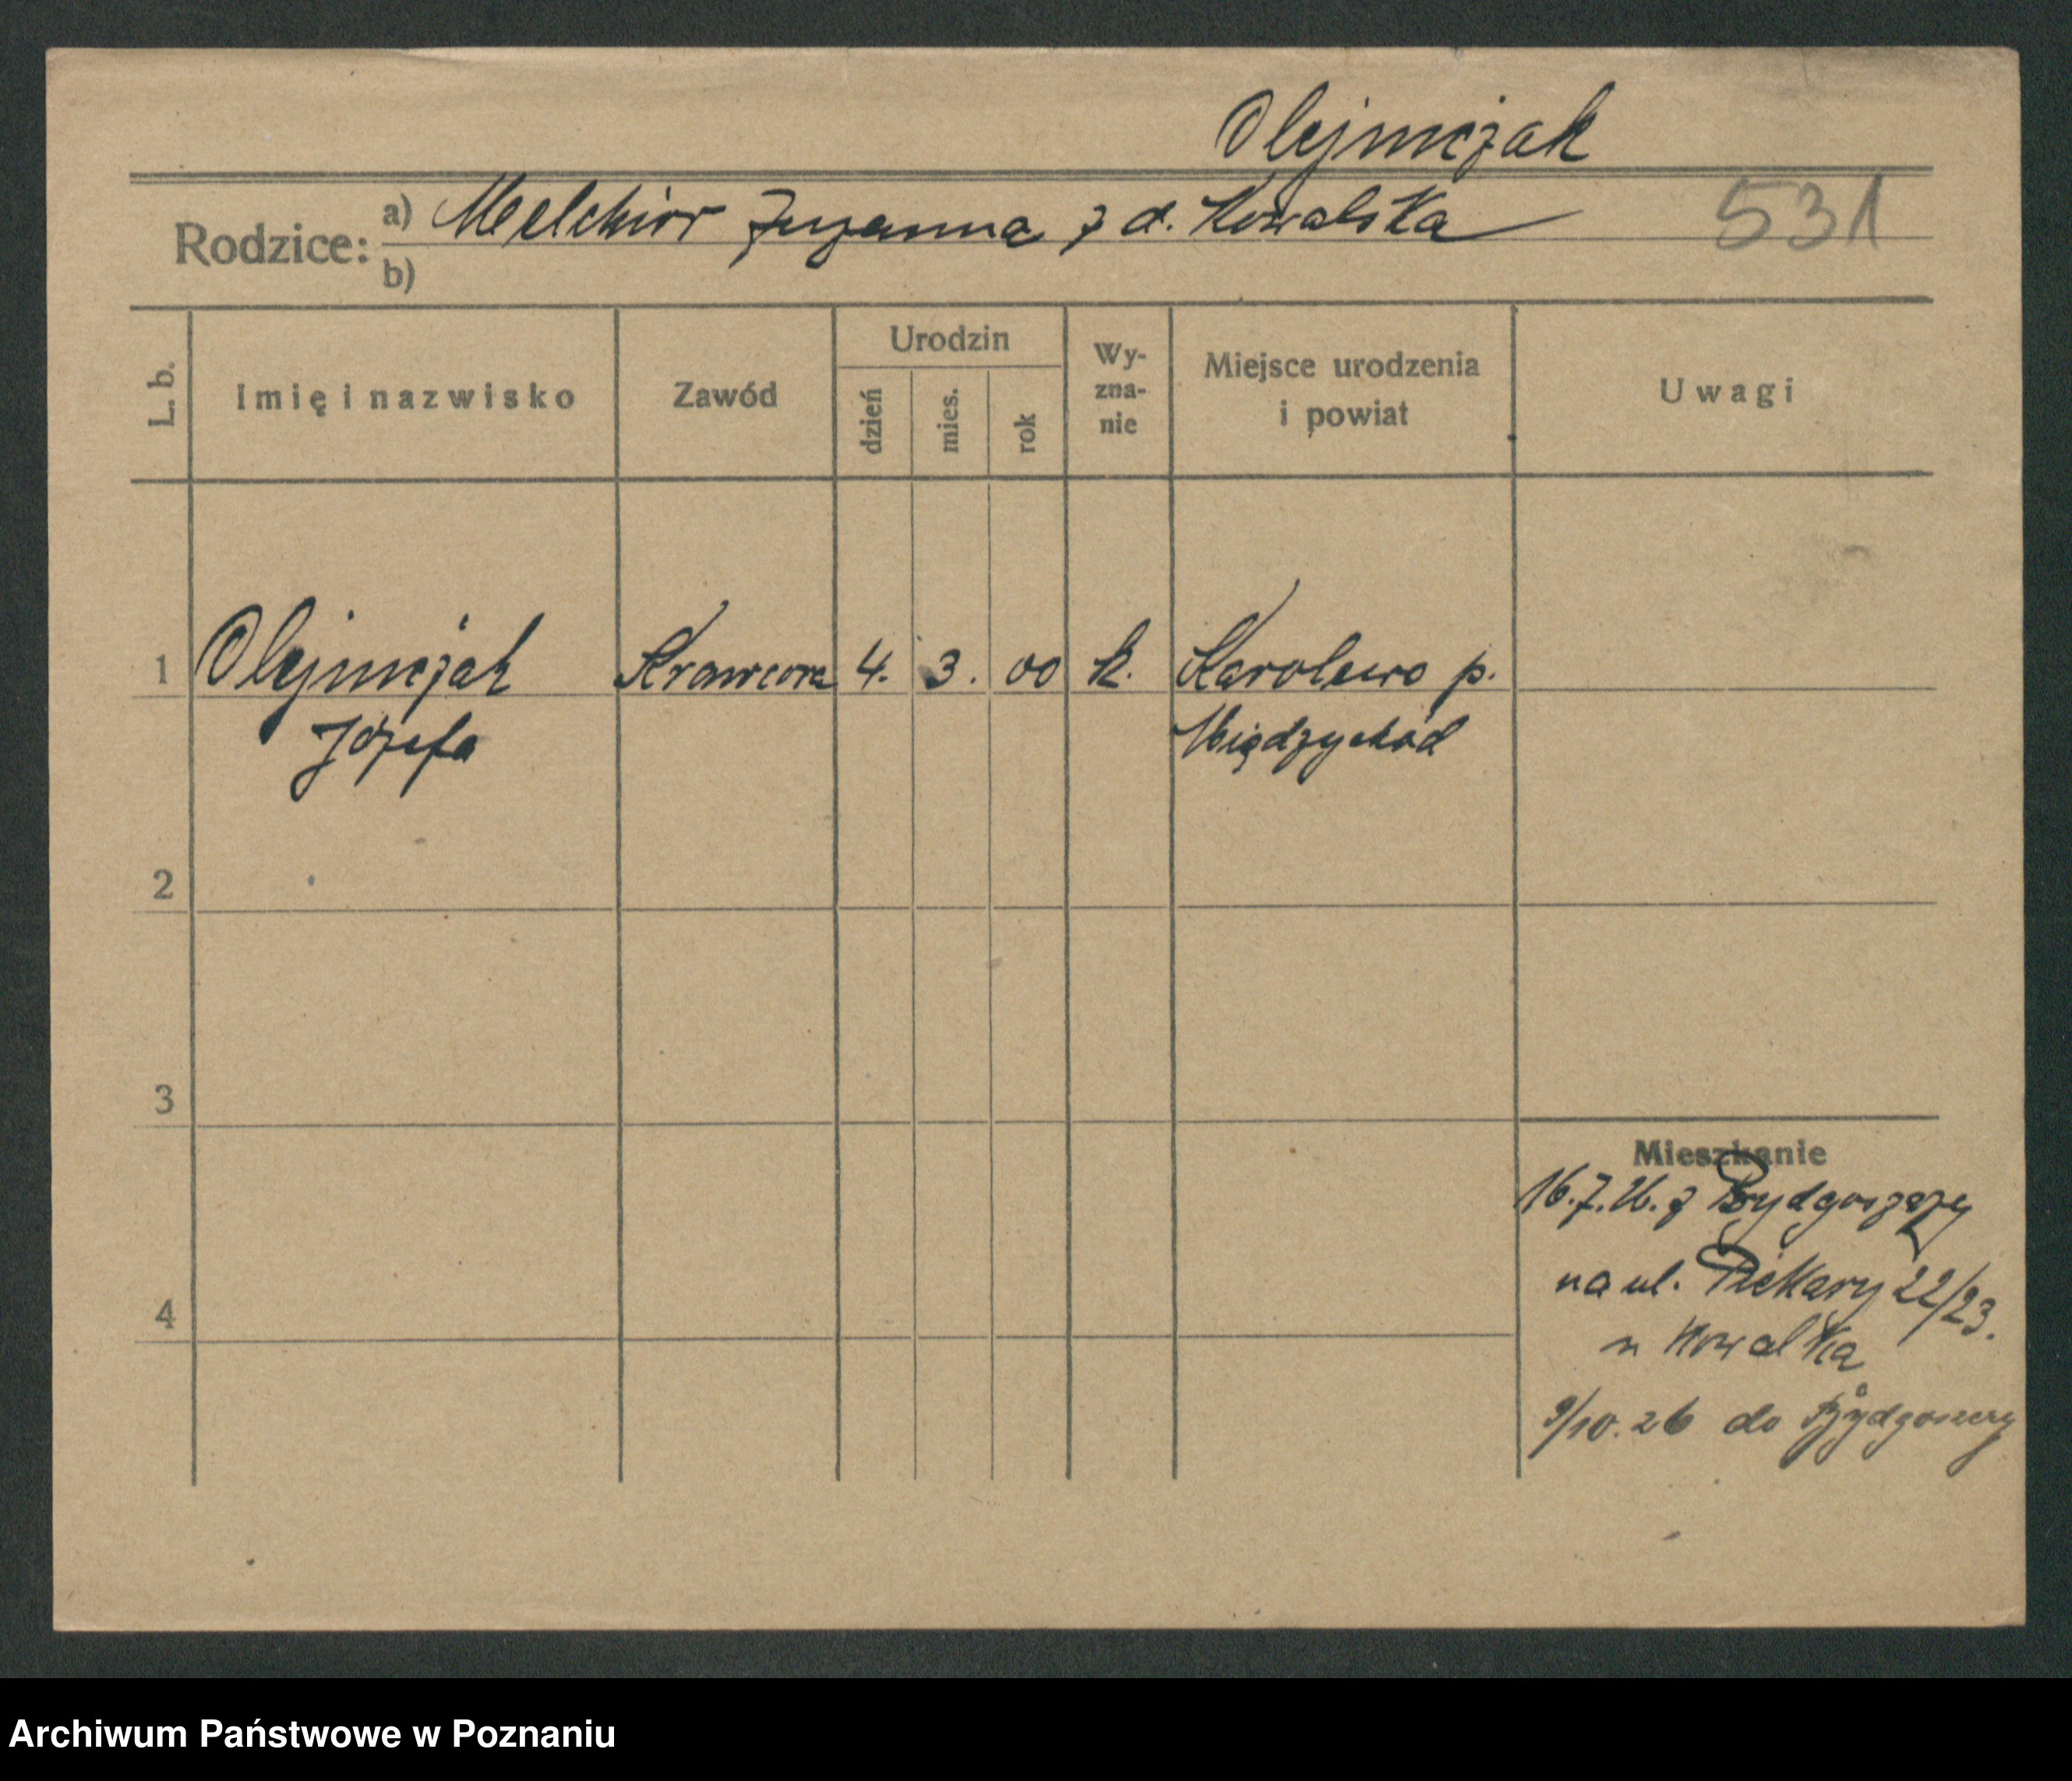 Olejniczak
Rodzice: a) Melchior Zuzanna z d. Kowalska 531
b)
L. b. Imię i nazwisko Zawód Urodzin dzień mies. rok Wy-zna-nie Miejsce urodzenia i powiat Uwagi
1 Olejniczak Krawcowa 4. 3. 00 k. Karolewo p.
Józefa Międzychód
2
3
Mieszkanie
16.7.26. z Bydgoszczy
na ul. Piekary 22/23.
4
u Kowalka
9/10.26 do Bydgoszczy
Archiwum Państwowe w Poznaniu